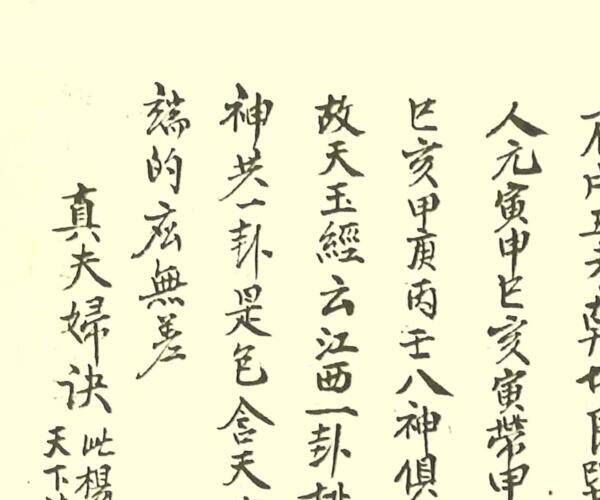 人元寅申巳亥寅帶甲
巳亥甲庚丙壬八神俱
故天玉經云江西一卦
神共一卦是包含天
端的應無差
真夫婦訣
此楊
天下